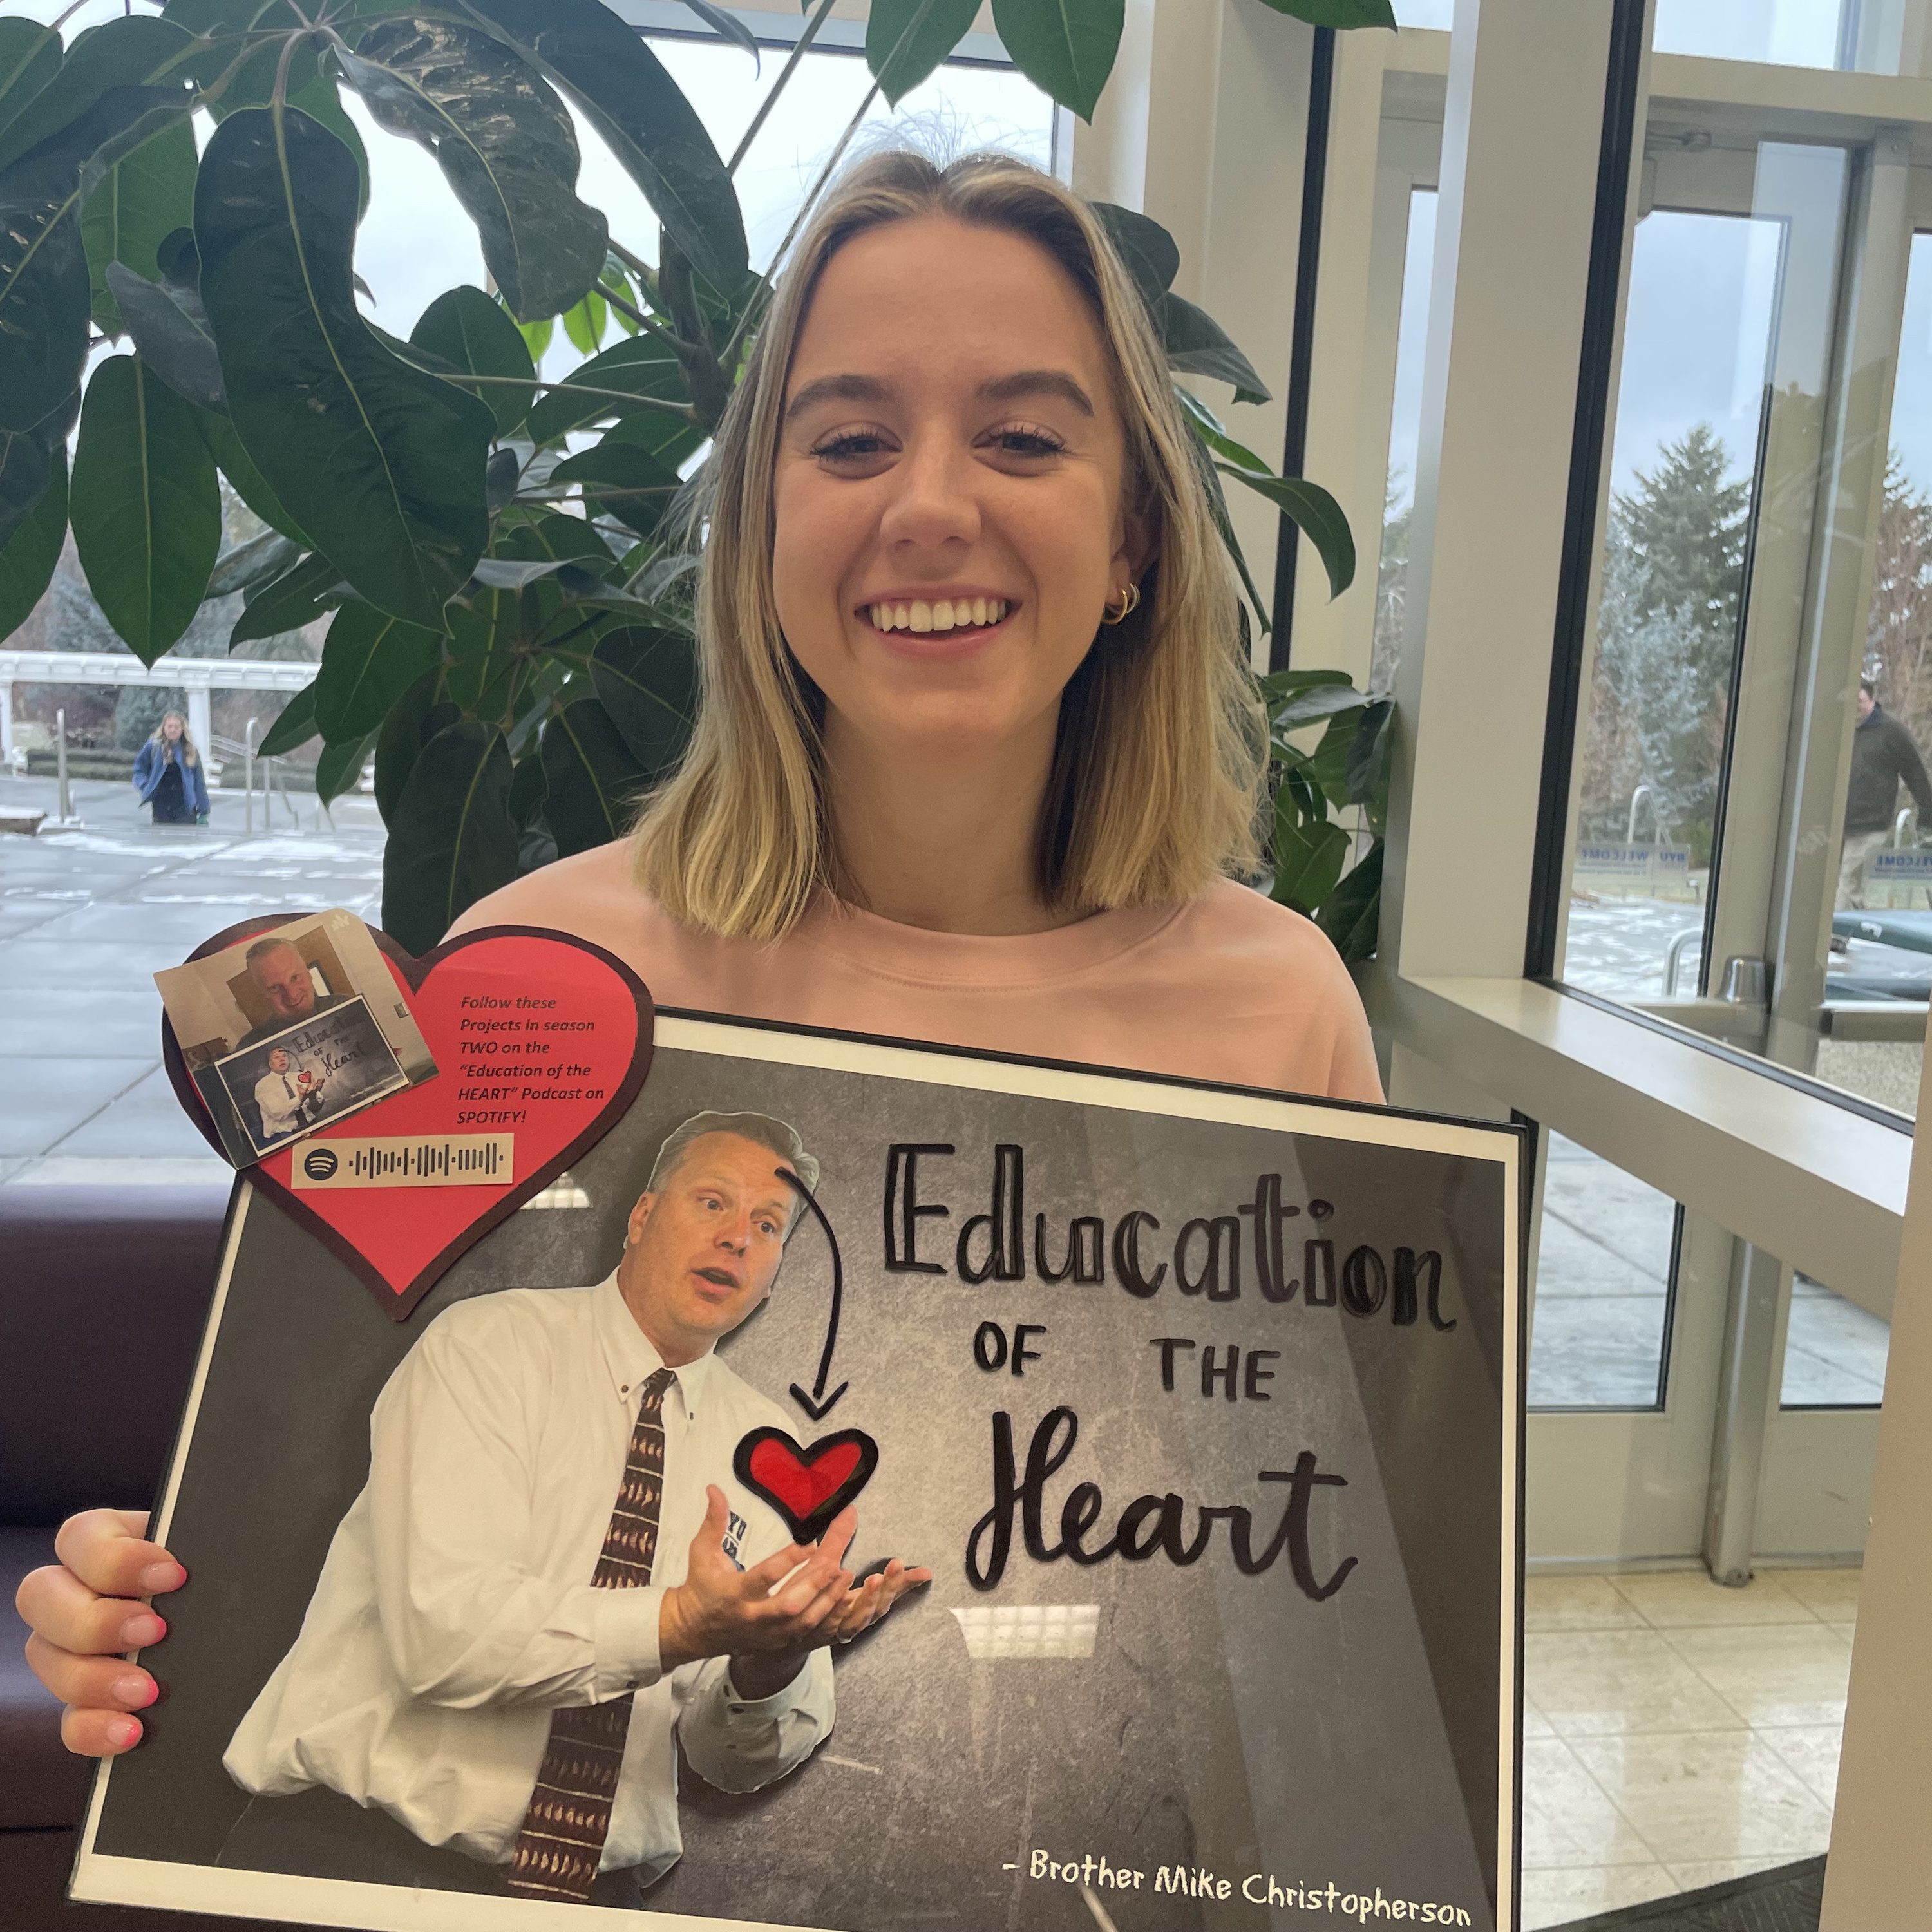 Follow these
Projects in season
TWO on the
"Education of the
HEART" Podcast on
SPOTIFY!
Education
OF THE
Heart
Education
OF THE
Heart
- Brother Mike Christopherson
WELCOME BYU
WELCOME